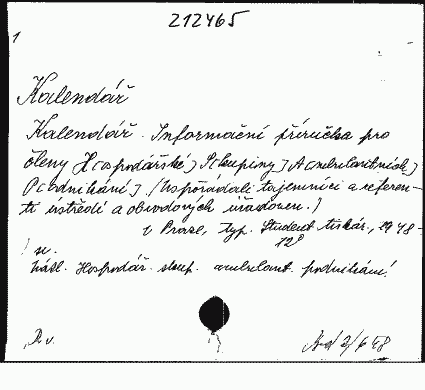 212465
1
Kalendář
Kalendář. Informační příručka pro
členy H[ospodářské] S[kupiny] A[mbulantních]
P[odnikání] /Uspořádali tajemníci a referen-
ti ústředí a obvodových úřadoven./
v Praze, typ. Student. tiskár., 1948-
12°
sv.
nákl. Hospodář. skup. ambulant. podnikání.